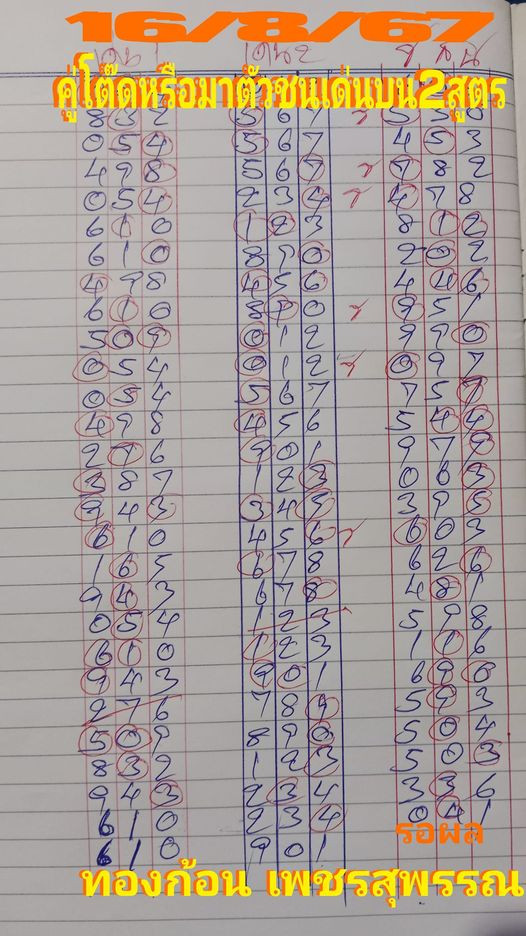 16/8/67
เด่น 1 เด่น 2 ร ส น
คู่โต๊ดหรือมาตัวชนเด่นบน2สูตร
8 3 2 5 6 7 5 5 0
0 5 4 5 6 7 4 5 3
4 9 8 5 6 7 9 8 2
0 5 4 2 3 4 4 7 8
6 1 0 1 2 3 8 1 2
6 1 0 8 9 0 2 0 2
4 9 8 4 5 6 4 4 6
6 1 0 8 9 0 9 5 1
5 0 9 0 1 2 9 9 0
0 5 4 0 1 2 0 9 7
0 5 4 5 6 7 7 5 7
4 9 8 4 5 6 5 4 4
2 7 6 9 0 1 9 7 9
2 8 7 1 2 3 0 6 3
9 4 3 3 4 5 3 9 5
6 1 0 4 5 6 6 0 3
1 6 5 6 7 8 6 2 6
9 4 3 6 7 8 4 8 1
0 5 4 1 2 3 5 9 8
6 1 0 1 2 3 1 1 6
9 4 3 9 0 1 6 9 0
2 7 6 7 8 9 5 9 3
5 0 9 8 9 0 5 0 4
8 3 2 1 2 3 5 0 3
9 4 3 2 3 4 3 3 6
6 1 0 2 3 4 0 4 1
6 1 0 9 0 1 รอผล
ทองก้อน เพชรสุพรรณ